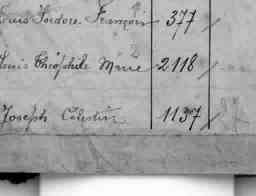 Louis Isidore François 377 /
Louis Théophile Marie 2118 /
Joseph Célestin 1137 /